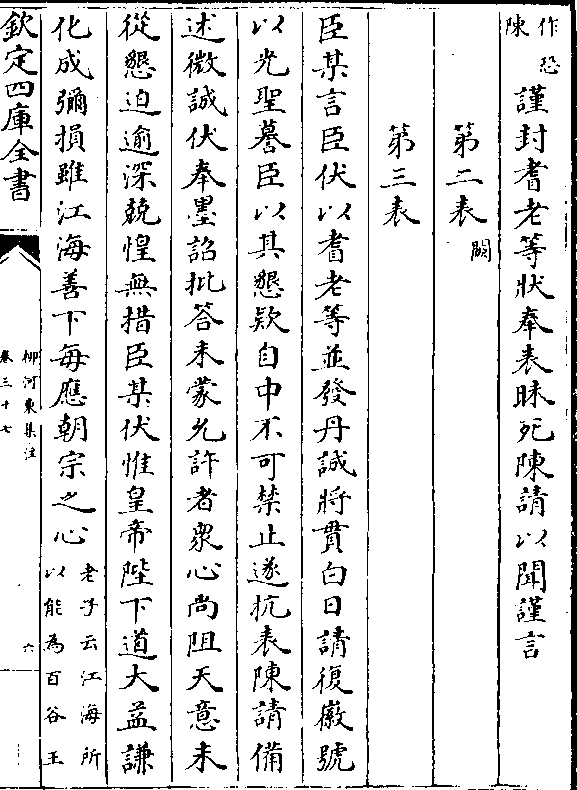 作恐
陳
謹封耆老等狀奉表昧死陳請以聞謹言
第二表闕
第三表
臣某言臣伏以耆老等並發丹誠將貫白日請復徽號
以光聖謩臣以其懇欵自中不可禁止遂抗表陳請備
述微誠伏奉墨詔批答未蒙允許者衆心尚阻天意未
從懇迫逾深兢惶無措臣某伏惟皇帝陛下道大益謙
化成彌損雖江海善下每應朝宗之心老子云江海所
以能為百谷王
欽定四庫全書
柳河東集注
卷三十七
六